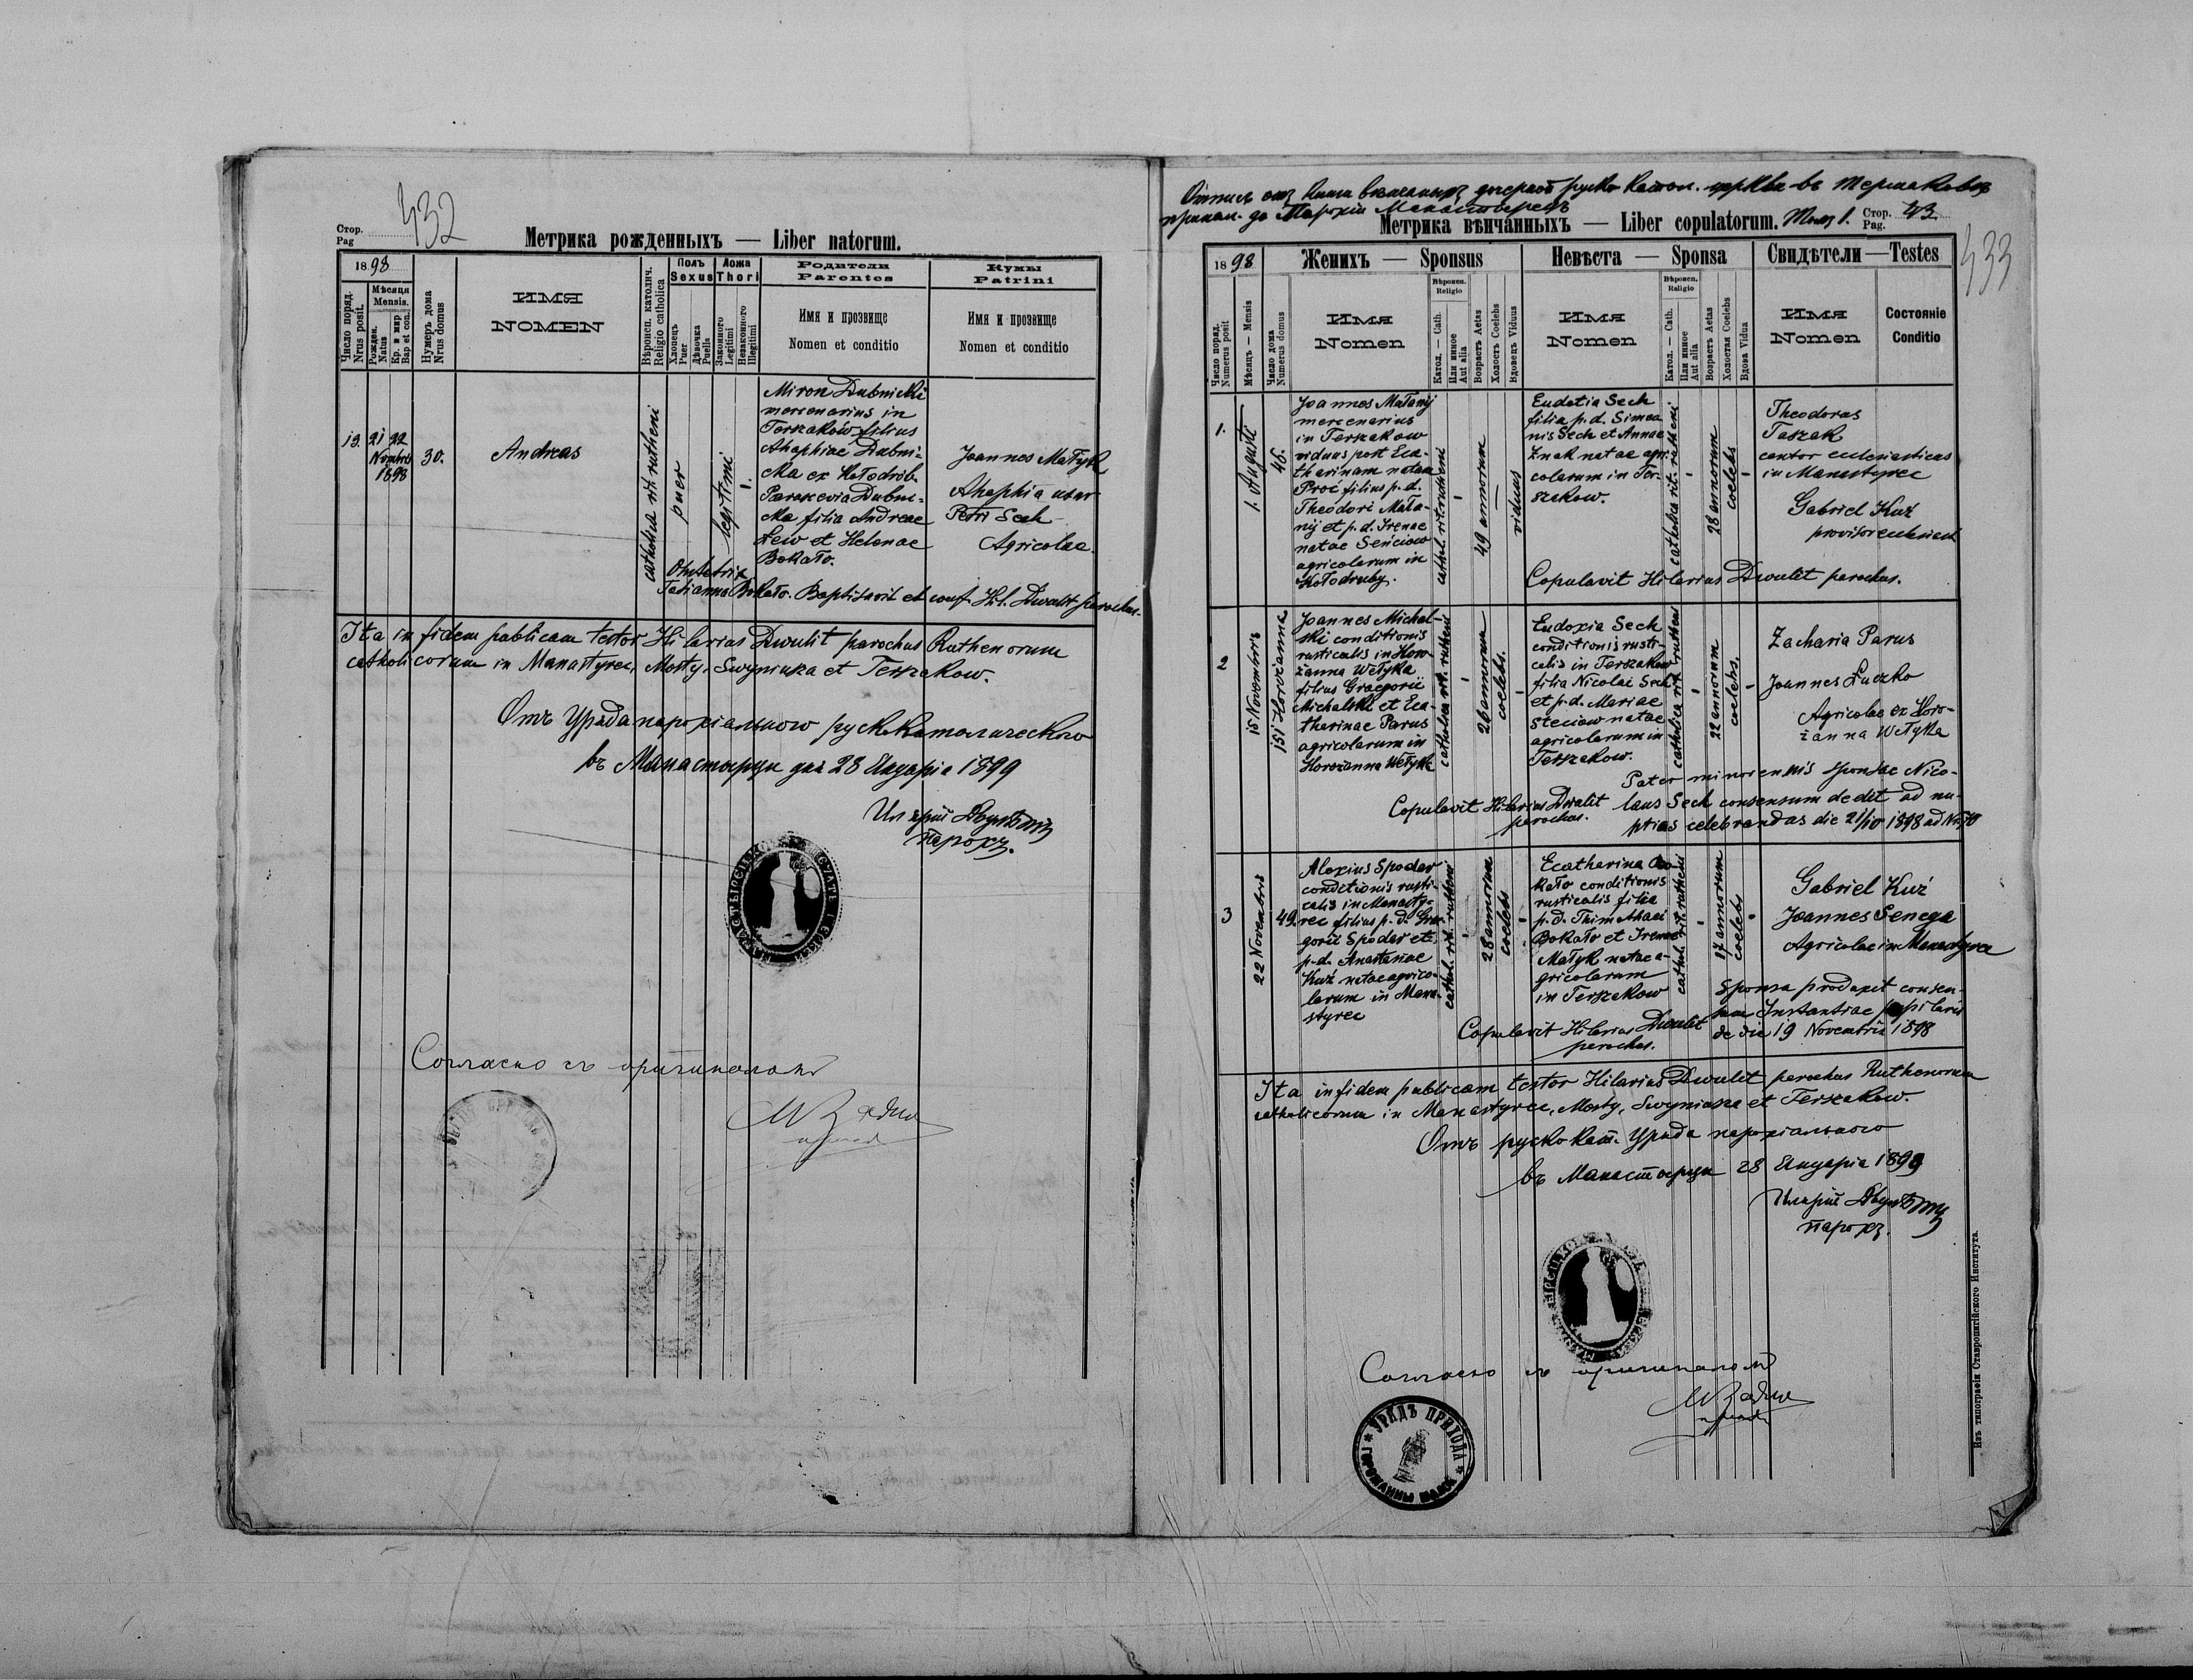 432
Стор.
Pag
Метрика рожденныхъ — Liber natorum.
1898
Число поряд.
Nrus posit.
Мѣсяця
Mensis.
Рожден.
Natus
Кр. и мир
Bap et con.
Нумеръ дома
Nrus domus
ИМЯ
NOMEN
Вѣроисп. католич.
Religio catholica
Полъ
Sexus
Хлопецъ
Puer
Дѣвочка
Puella
Ложа
Thori
Законного
Legitimi
Незаконного
Illegitimi
Родители
Parentes
Имя и прозвище
Nomen et conditio
Кумы
Patrini
Имя и прозвище
Nomen et conditio
13. 21 22
Novembris
1898
30.
Andreas
catholica rit. rutheni
puer
legitimi
1.
Miron Dubnicki
mercenarius in
Terszaków filius
Ahaphiae Dubni-
cka ex Kołodrub.
Parascevia Dubni-
cka filia Andreae
Lew et Helenae
Bokało.
Joannes Matyk
Ahaphia uxor
Petri Sech
Agricolae.
Obstetrix
Tatianna Bokało. Baptisavit et conf. Hil. Dwulit parochus.
Ita in fidem publicam testor Hilarius Dwulit parochus Ruthenorum
catholicorum in Manastyrec, Mosty, Swyniusza et Terszakow.
Отъ Уряда парохіального руск. католического
въ Манастырци дня 28 Януарія 1899
Иларій Двулѣтъ
парохъ.
Согласно съ оригиналомъ
Отпись отъ Книги вѣнчаныхъ дочерной руско катол. церкви въ Тершаковѣ
принал. до Парохіи Манастырецъ
Метрика вѣнчанныхъ — Liber copulatorum. Томъ 1. Стор.
Pag. 43.
433
1898
Женихъ — Sponsus
Невѣста — Sponsa
Свидѣтели — Testes
Число поряд.
Numerus posit
Мѣсяцъ — Mensis
Число дома
Numerus domus
Имя
Nomen
Вѣроисп.
Religio
Катол. — Cath.
Или инное
Aut alia
Возрастъ Aetas
Холостъ Coelebs
Вдовецъ Viduus
Имя
Nomen
Вѣроисп.
Religio
Катол. — Cath.
Или инное
Aut alia
Возрастъ Aetas
Холостая Coelebs
Вдова Vidua
Имя
Nomen
Состояніе
Conditio
1.
1. Augusti
46.
Joannes Matanij
mercenarius
in Terszakow
viduus post Eca-
tharinam natam
Proć filius p.d.
Theodori Mata-
nij et p.d. Irenae
natae Seńciow
agricolarum in
Kołodruby.
cathol. rit. rutheni
49 annorum
viduus
Eudotia Sech
filia p.d. Simeo-
nis Sech et Annae
Znak natae agri-
colarum in Ter-
szakow.
catholica rit. rutheni
28 annorum
coelebs
Theodorus
Taszak
cantor ecclesiasticus
in Manastyrec
Gabriel Kuź
provisor ecclesiast
Copulavit Hilarius Dwulit parochus.
2
15 Novembris
151 Horożanna
Joannes Michal-
ski conditionis
rusticalis in Horo-
żanna Wełyka
filius Graegorii
Michalski et Eca-
therinae Parus
agricolarum in
Horożanna Wełyka
catholica rit. rutheni
26 annorum
coelebs.
Eudoxia Sech
conditionis rusti-
calis in Terszakow
filia Nicolai Sech
et p.d. Mariae
Steciow natae
agricolarum in
Terszakow.
catholica rit. rutheni
22 annorum
coelebs.
Zacharia Parus
Joannes Łuczko
Agricolae ex Horo-
żanna Wełyka
Pater minorennis sponsae Nico-
laus Sech consensum dedit ad nu-
ptias celebrandas die 21/10 1898
Copulavit Hilarius Dwulit
parochus.
3
22 Novembris
49.
Alexius Spodar
conditionis rusti-
calis in Manasty-
rec filius p.d. Gre-
gorii Spodar et
p.d. Anastasiae
Kuź natae agrico-
larum in Mana-
styrec
cathol. rit. rutheni
28 annorum
coelebs
Ecatharina Bo-
kało conditionis
rusticalis filia
p.d. Thimothaei
Bokało et Irenae
Matyk natae a-
gricolarum
in Terszakow
cathol. rit. rutheni
17 annorum
coelebs
Gabriel Kuź
Joannes Senega
Agricolae in Manastyrec
Sponsa produxit consen-
sum Instantiae pupilaris
de die 19 Novembris 1898
Copulavit Hilarius Dwulit
parochus.
Ita in fidem publicam testor Hilarius Dwulit parochus Ruthenorum
catholicorum in Manastyrec, Mosty, Swyniusza et Terszakow.
Отъ руско кат. Уряда парохіального
въ Манастырци 28 Януарія 1899
Иларій Двулѣтъ
парохъ.
Согласно съ оригиналомъ
УРЯДЪ ПРИХОДА
Изъ типографіи Ставропигійского Института.